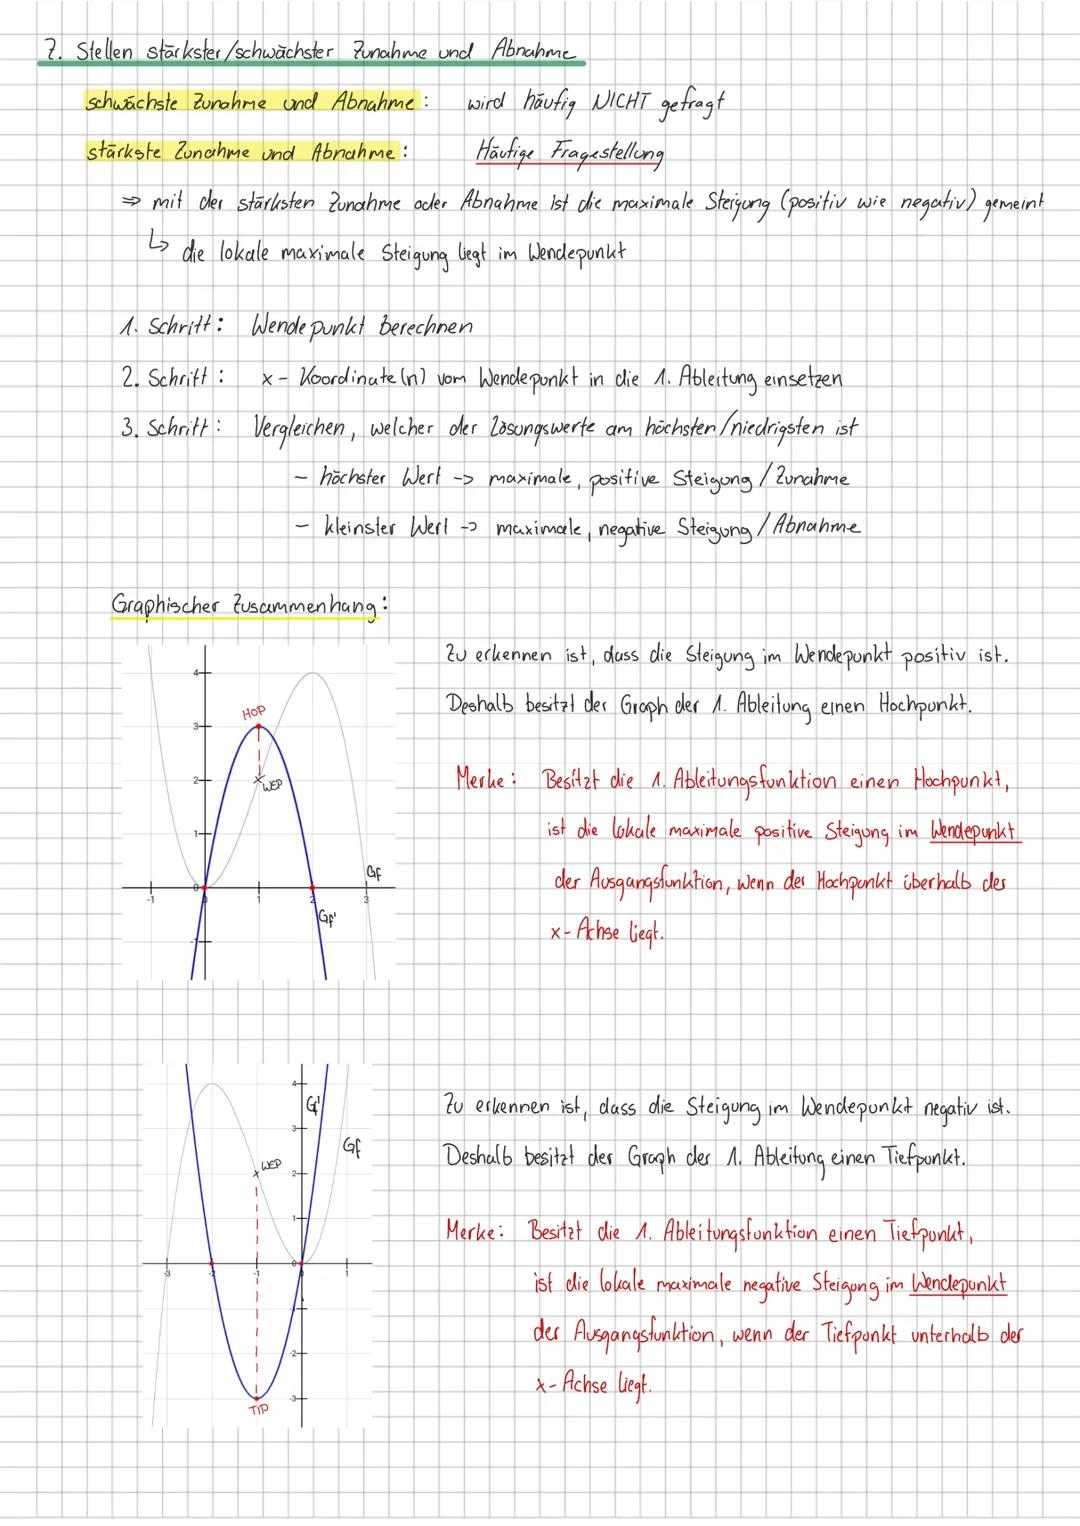 7. Stellen stärkster/schwächster Zunahme und Abnahme
schwächste Zunahme und Abnahme: wird häufig NICHT gefragt
stärkste Zunahme und Abnahme: Häufige Fragestellung
⇒ mit der stärksten Zunahme oder Abnahme ist die maximale Steigung (positiv wie negativ) gemeint
↳ die lokale maximale Steigung liegt im Wendepunkt
1. Schritt: Wendepunkt berechnen
2. Schritt: x-Koordinate(n) vom Wendepunkt in die 1. Ableitung einsetzen
3. Schritt: Vergleichen, welcher der Lösungswerte am höchsten/niedrigsten ist
- höchster Wert -> maximale, positive Steigung / Zunahme
- kleinster Wert -> maximale, negative Steigung / Abnahme
Graphischer Zusammenhang:
Zu erkennen ist, dass die Steigung im Wendepunkt positiv ist.
Deshalb besitzt der Graph der 1. Ableitung einen Hochpunkt.
Merke: Besitzt die 1. Ableitungsfunktion einen Hochpunkt,
ist die lokale maximale positive Steigung im Wendepunkt
der Ausgangsfunktion, wenn der Hochpunkt überhalb der
x-Achse liegt.
4
HOP
3
2
WEP
1
Gf
-1
0
1
2
3
Gf'
-1
Zu erkennen ist, dass die Steigung im Wendepunkt negativ ist.
Deshalb besitzt der Graph der 1. Ableitung einen Tiefpunkt.
Merke: Besitzt die 1. Ableitungsfunktion einen Tiefpunkt,
ist die lokale maximale negative Steigung im Wendepunkt
der Ausgangsfunktion, wenn der Tiefpunkt unterhalb der
x-Achse liegt.
4
G'
3
Gf
WEP
2
1
-3
-2
-1
0
1
-1
-2
-3
TIP